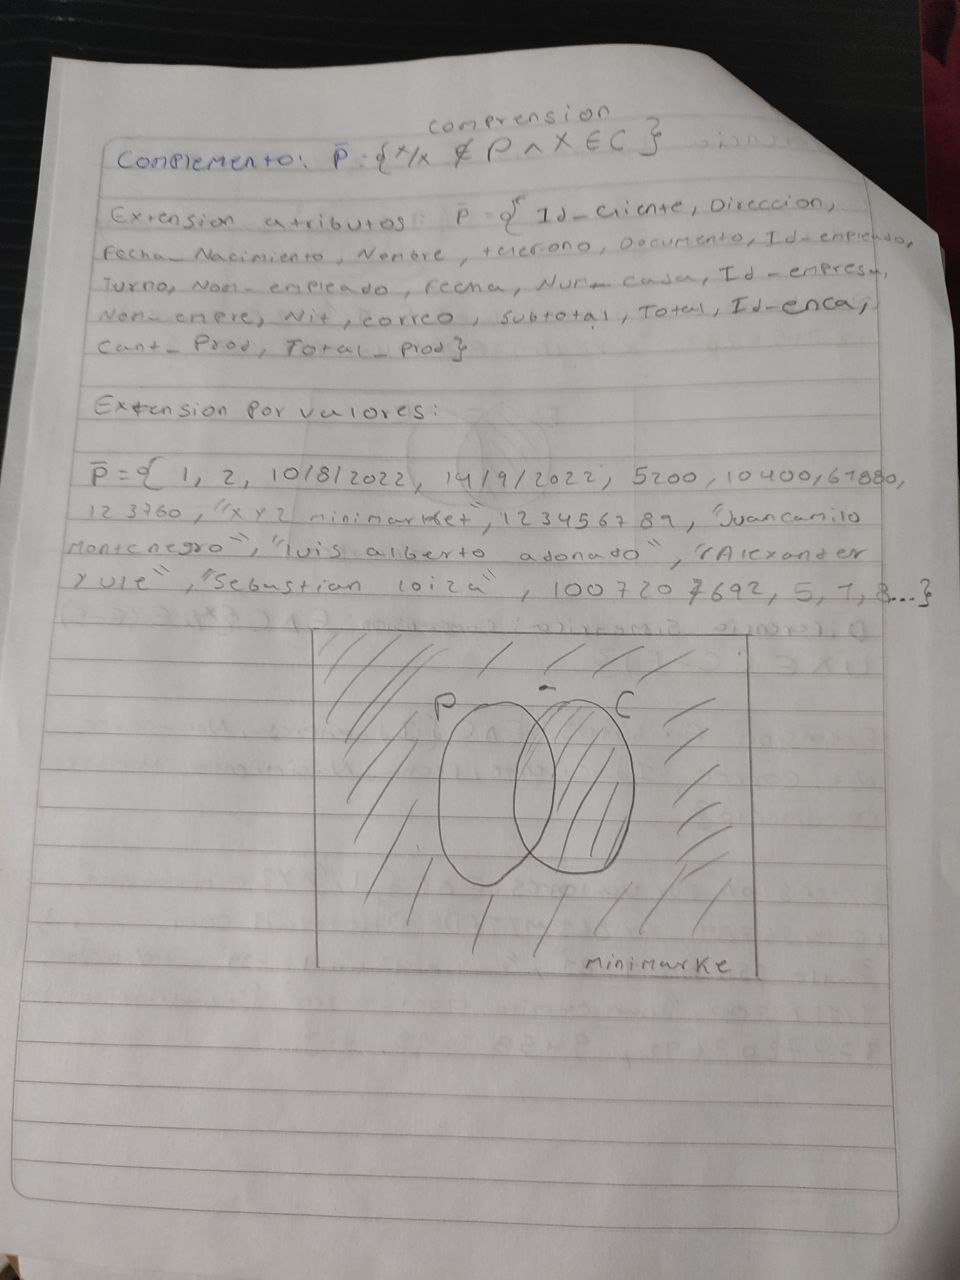 comprension
Complemento: P̄ = {x/x ∉ P ∧ X ∈ C }
Extension atributos: P̄ = { Id_cliente, Direccion,
Fecha_Nacimiento, Nombre, telefono, Documento, Id_enpleado,
Turno, Nom_enpleado, Fecha, Num_casa, Id_enpresa,
Non_enpre, Nit, correo, subtotal, Total, Id_enca,
Cant_Prod, Total_Prod}
Extension Por valores:
P̄ = { 1, 2, 10/8/2022, 14/9/2022, 5200, 10400, 61880,
123760, "XYZ minimarket", 123456789, "Juancamilo
Montenegro", "luis alberto adonado", "Alexander
yule", "Sebastian loiza", 1007207692, 5, 7, 8...}
P C
minimarke